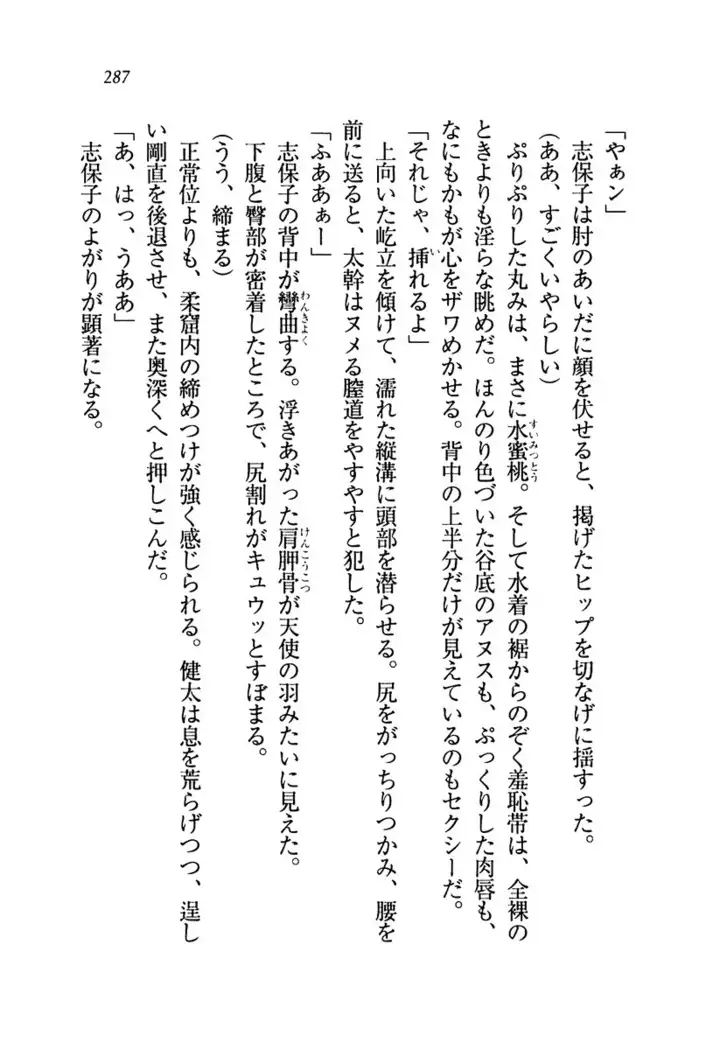 287
「やぁン」
志保子は肘のあいだに顔を伏せると、掲げたヒップを切なげに揺すった。
(ああ、すごくいやらしい)
ぷりぷりした丸みは、まさに水蜜桃。そして水着の裾からのぞく羞恥帯は、全裸の
ときよりも淫らな眺めだ。ほんのり色づいた谷底のアヌスも、ぷっくりした肉唇も、
なにもかもが心をザワめかせる。背中の上半分だけが見えているのもセクシーだ。
「それじゃ、挿れるよ」
上向いた屹立を傾けて、濡れた縦溝に頭部を潜らせる。尻をがっちりつかみ、腰を
前に送ると、太幹はヌメる膣道をやすやすと犯した。
「ふああぁー」
志保子の背中が彎曲する。浮きあがった肩胛骨が天使の羽みたいに見えた。
下腹と臀部が密着したところで、尻割れがキュウッとすぼまる。
(うう、締まる)
正常位よりも、柔窟内の締めつけが強く感じられる。健太は息を荒らげつつ、逞し
い剛直を後退させ、また奥深くへと押しこんだ。
「あ、はっ、うああ」
志保子のよがりが顕著になる。